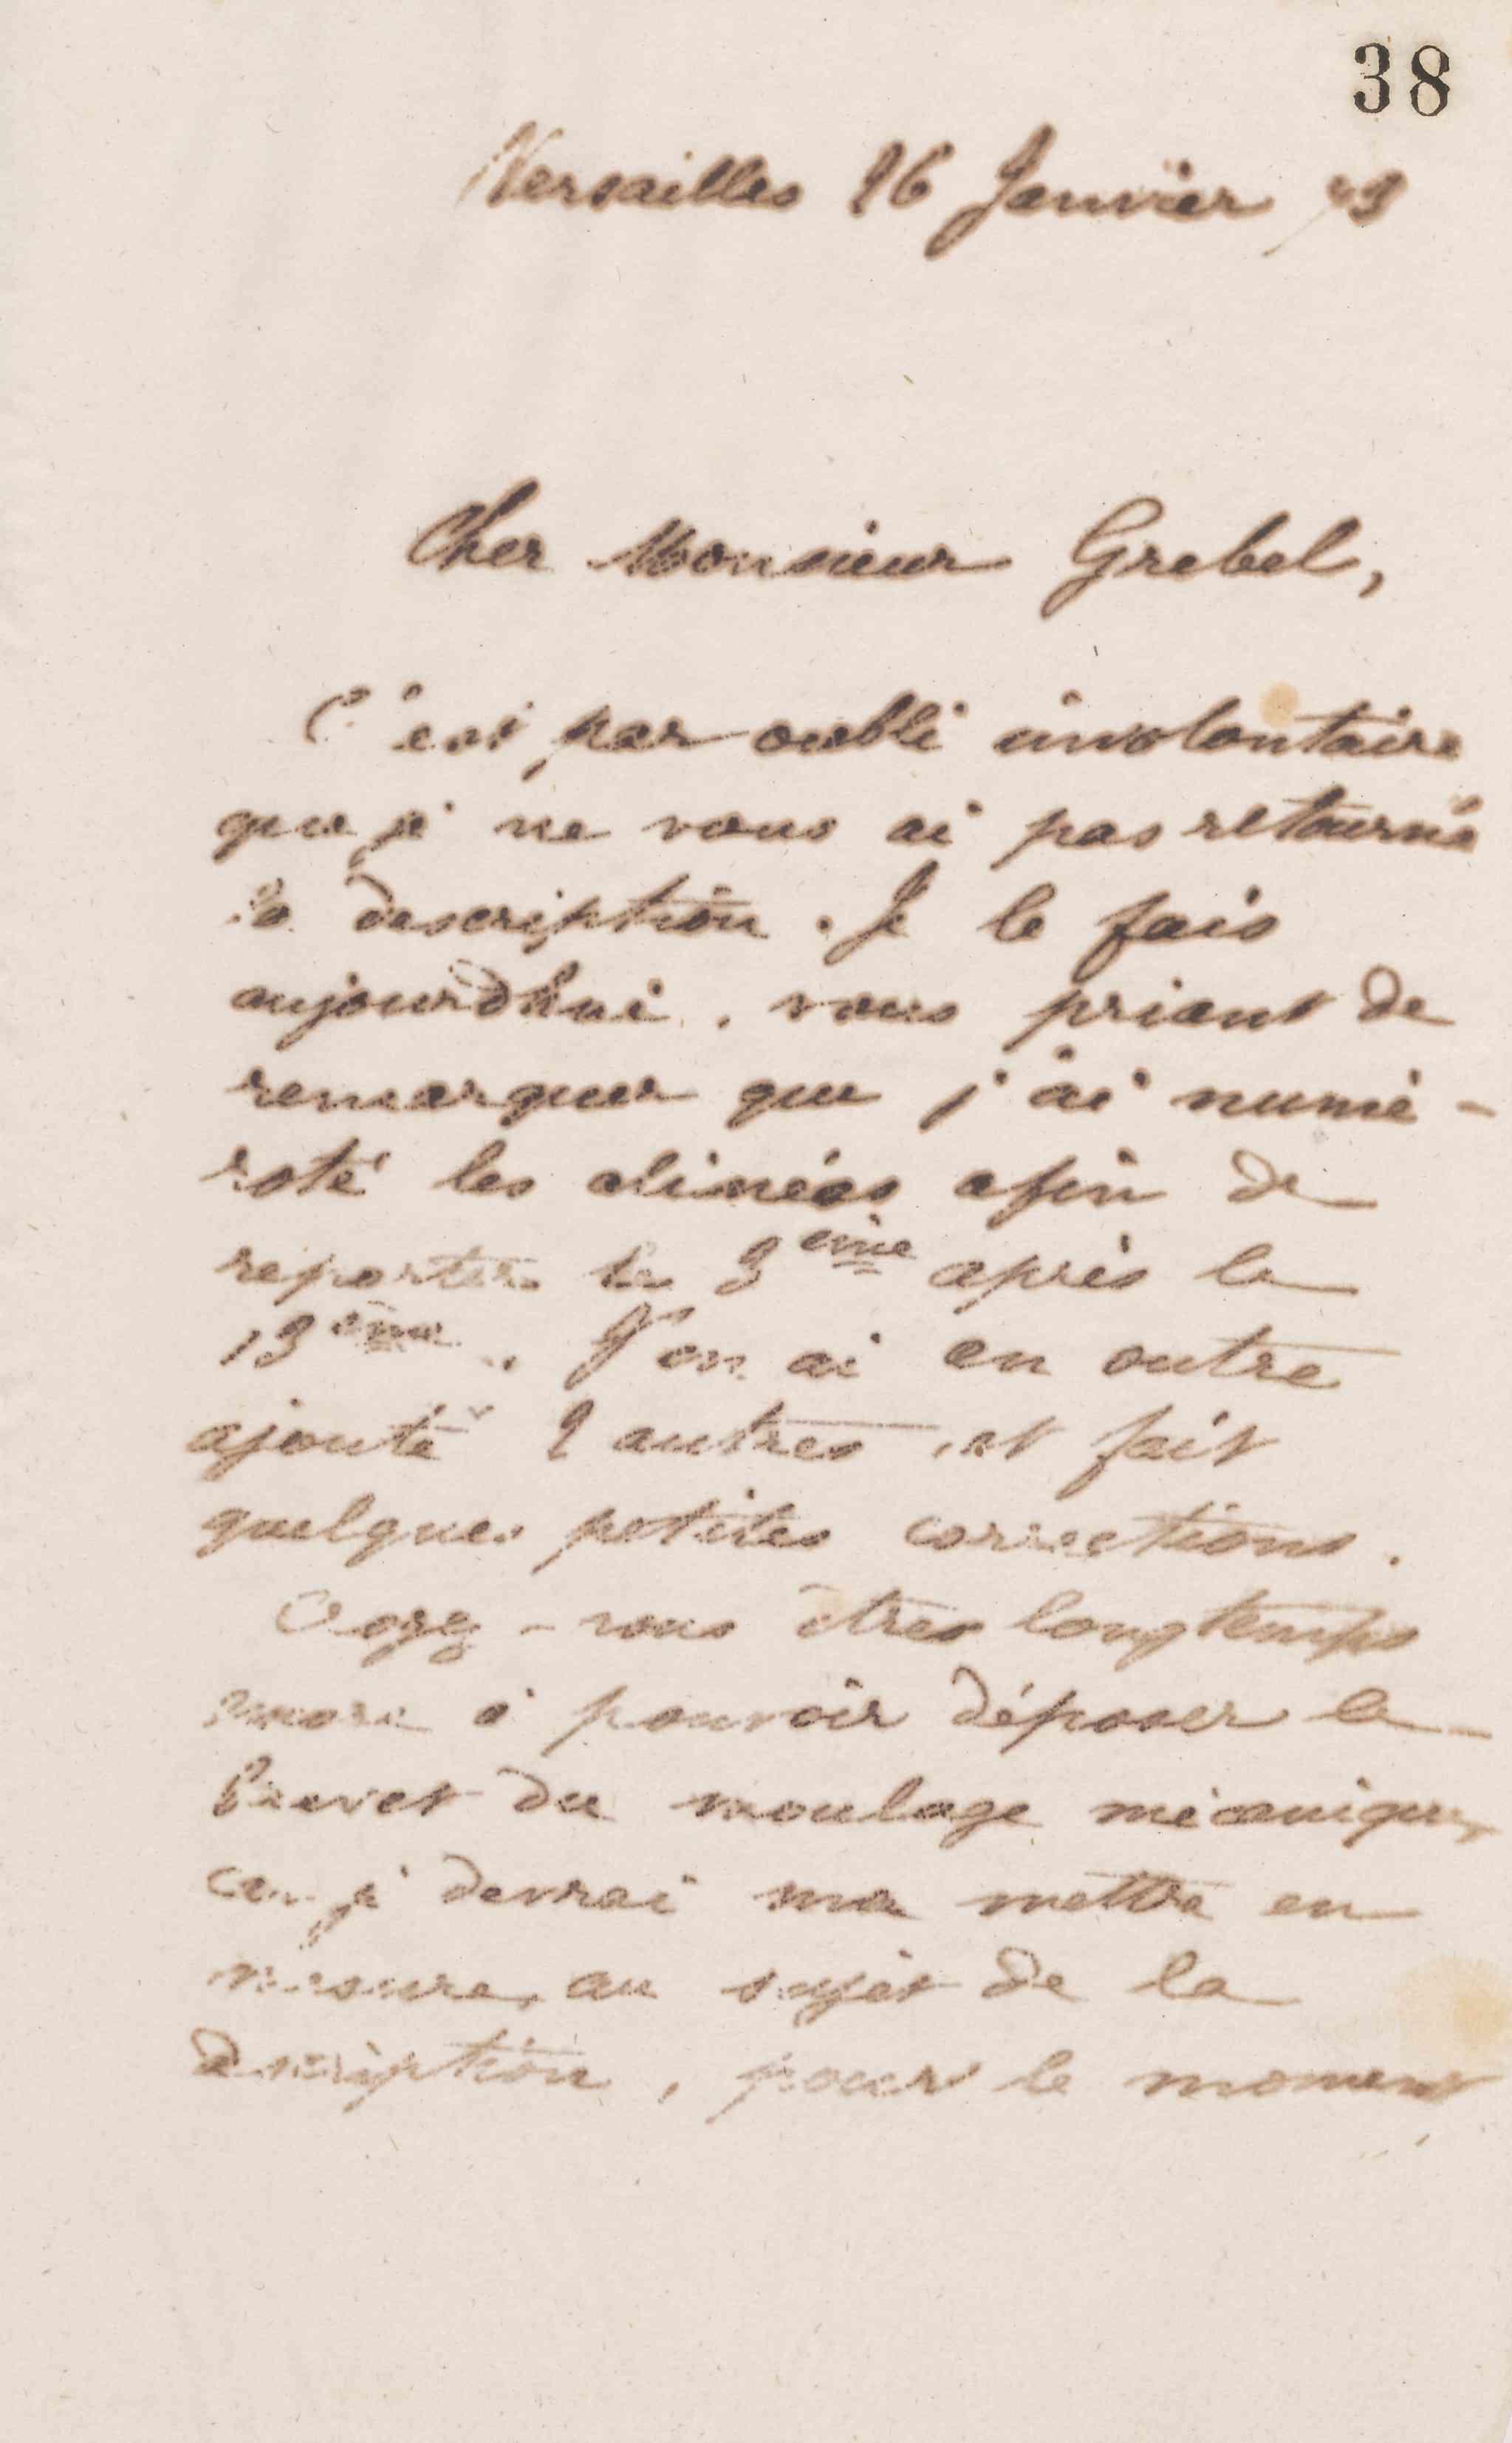 38
Versailles 26 Janvier 93
Cher Monsieur Grebel,
C'est par oubli involontaire
que je ne vous ai pas retourné
la description. Je le fais
aujourd'hui, vous priant de
remarquer que j'ai numé-
roté les alinéas afin de
reporter le 3ème après le
13ème. J'en ai en outre
ajouté 2 autres et fait
quelques petites corrections.
Croyez-vous être longtemps
encore à pouvoir déposer le
brevet du moulage mécanique,
car je devrai me mettre en
mesure, au sujet de la
description, pour le moment